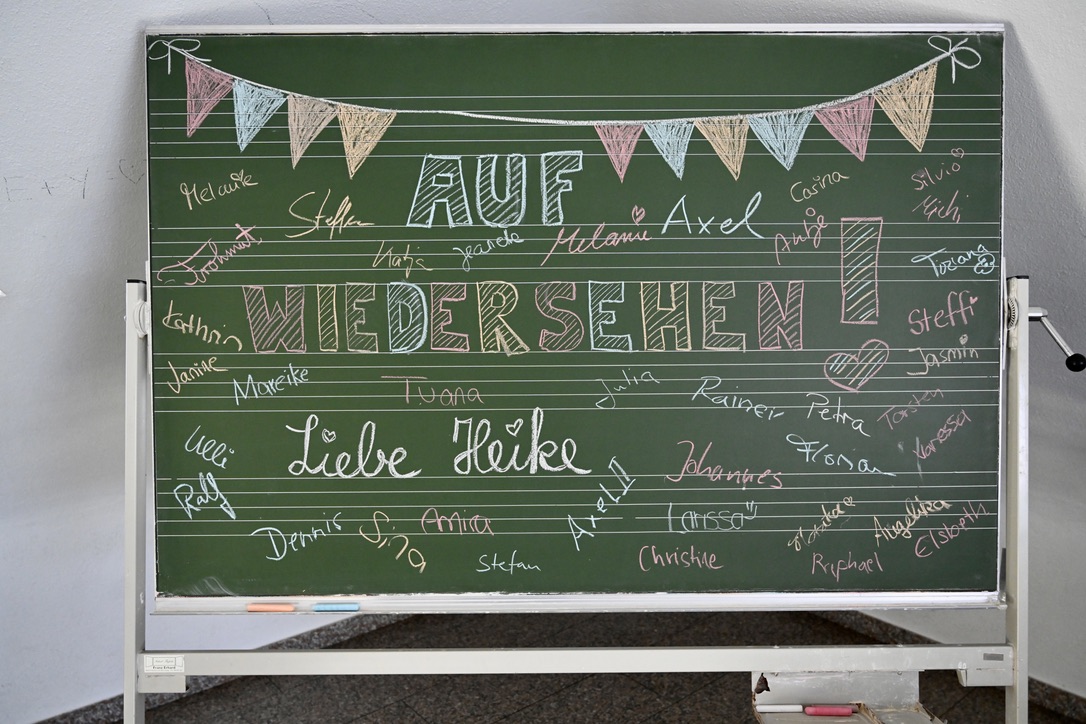 AUF
WIEDERSEHEN!
Liebe Heike
Melanie
Steffen
Katja
Melanie
Axel
Carina
Antje
Silvio
Michi
Frohmut
Kathrin
Janine
Mareike
Tuana
Julia
Rainer
Petra
Steffi
Jasmin
Torsten
Vanessa
Florian
Johannes
Ulli
Ralf
Dennis
Sina
Amira
Stefan
Axel II
Larissa
Christine
Monika
Angelika
Elsbeth
Raphael
E + Y